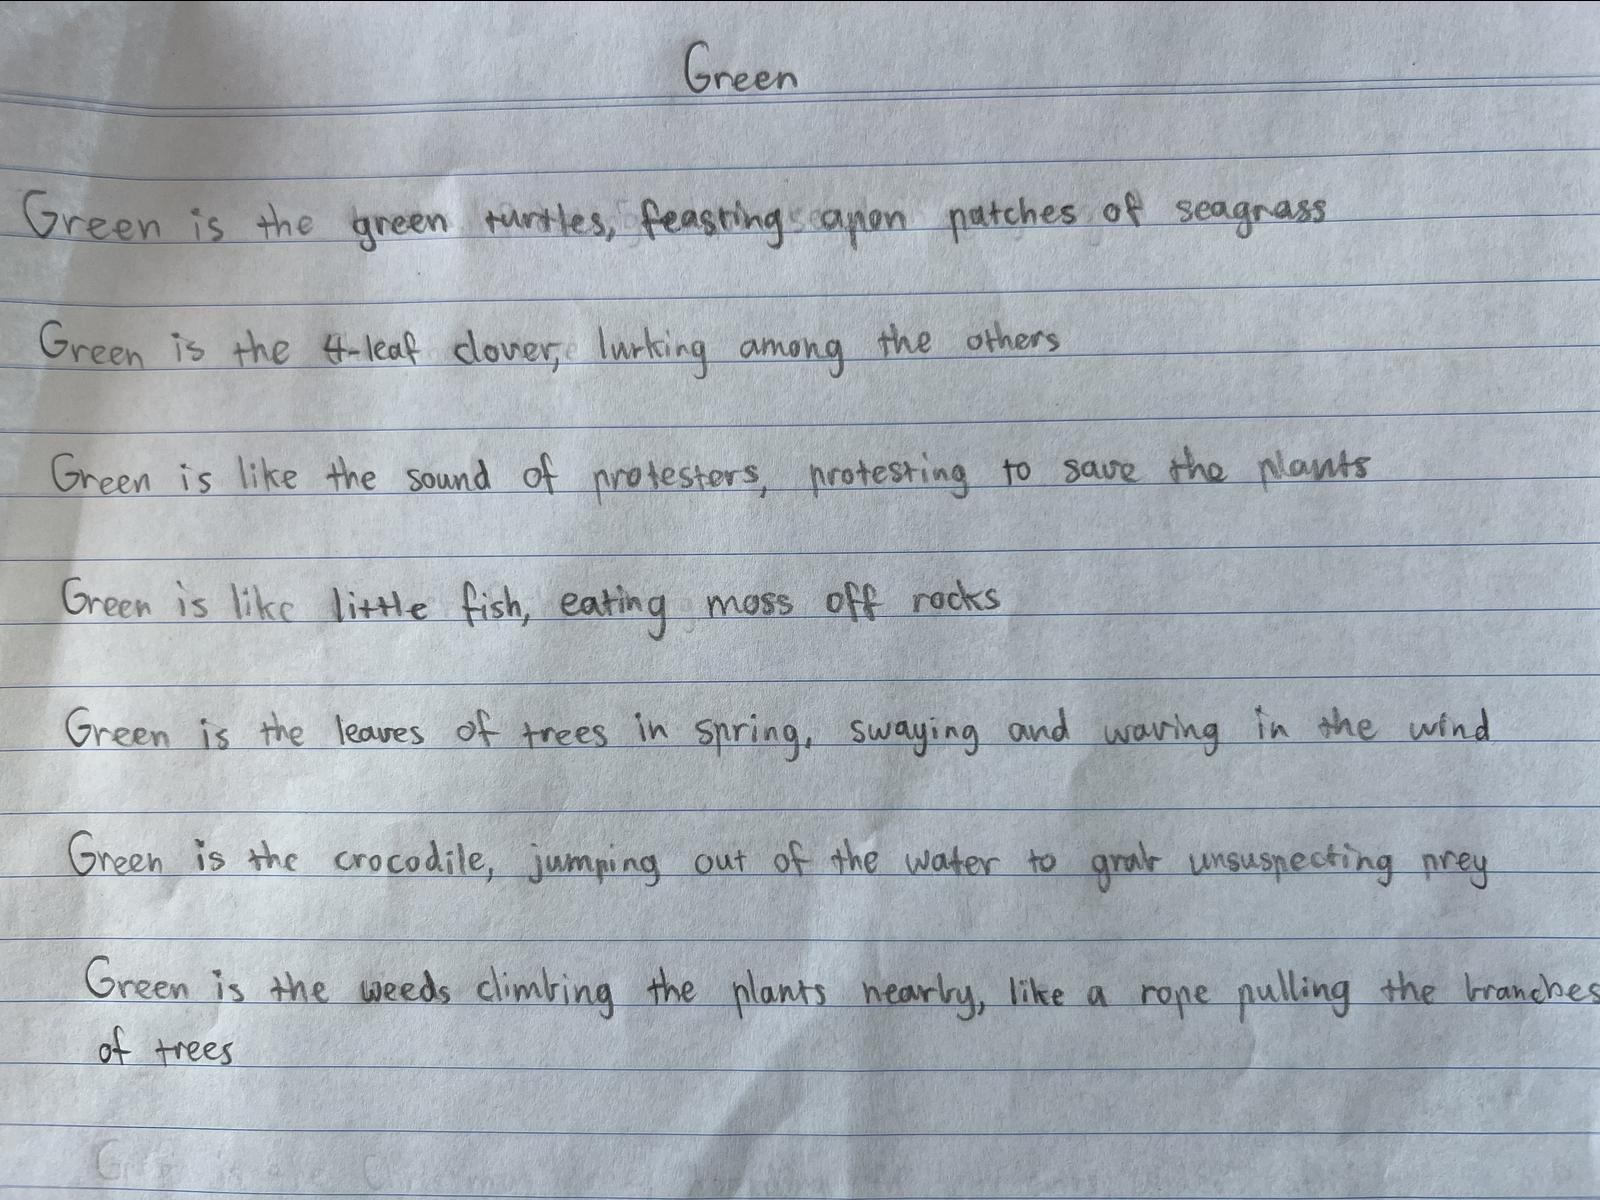 Green
Green is the green turtles, feasting apon patches of seagrass
Green is the 4-leaf clover, lurking among the others
Green is like the sound of protesters, protesting to save the plants
Green is like little fish, eating moss off rocks
Green is the leaves of trees in spring, swaying and waving in the wind
Green is the crocodile, jumping out of the water to grab unsuspecting prey
Green is the weeds climbing the plants nearby, like a rope pulling the branches
of trees